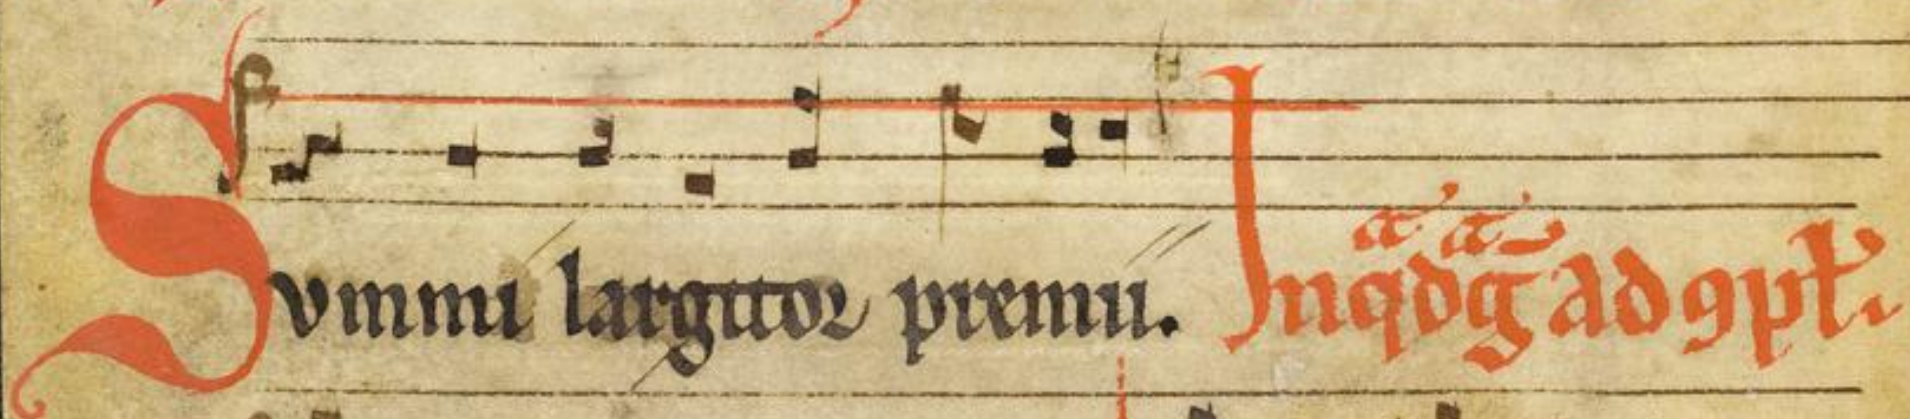 Summi largitor premii. In qͣdᷓg ad ꝯpƚ.